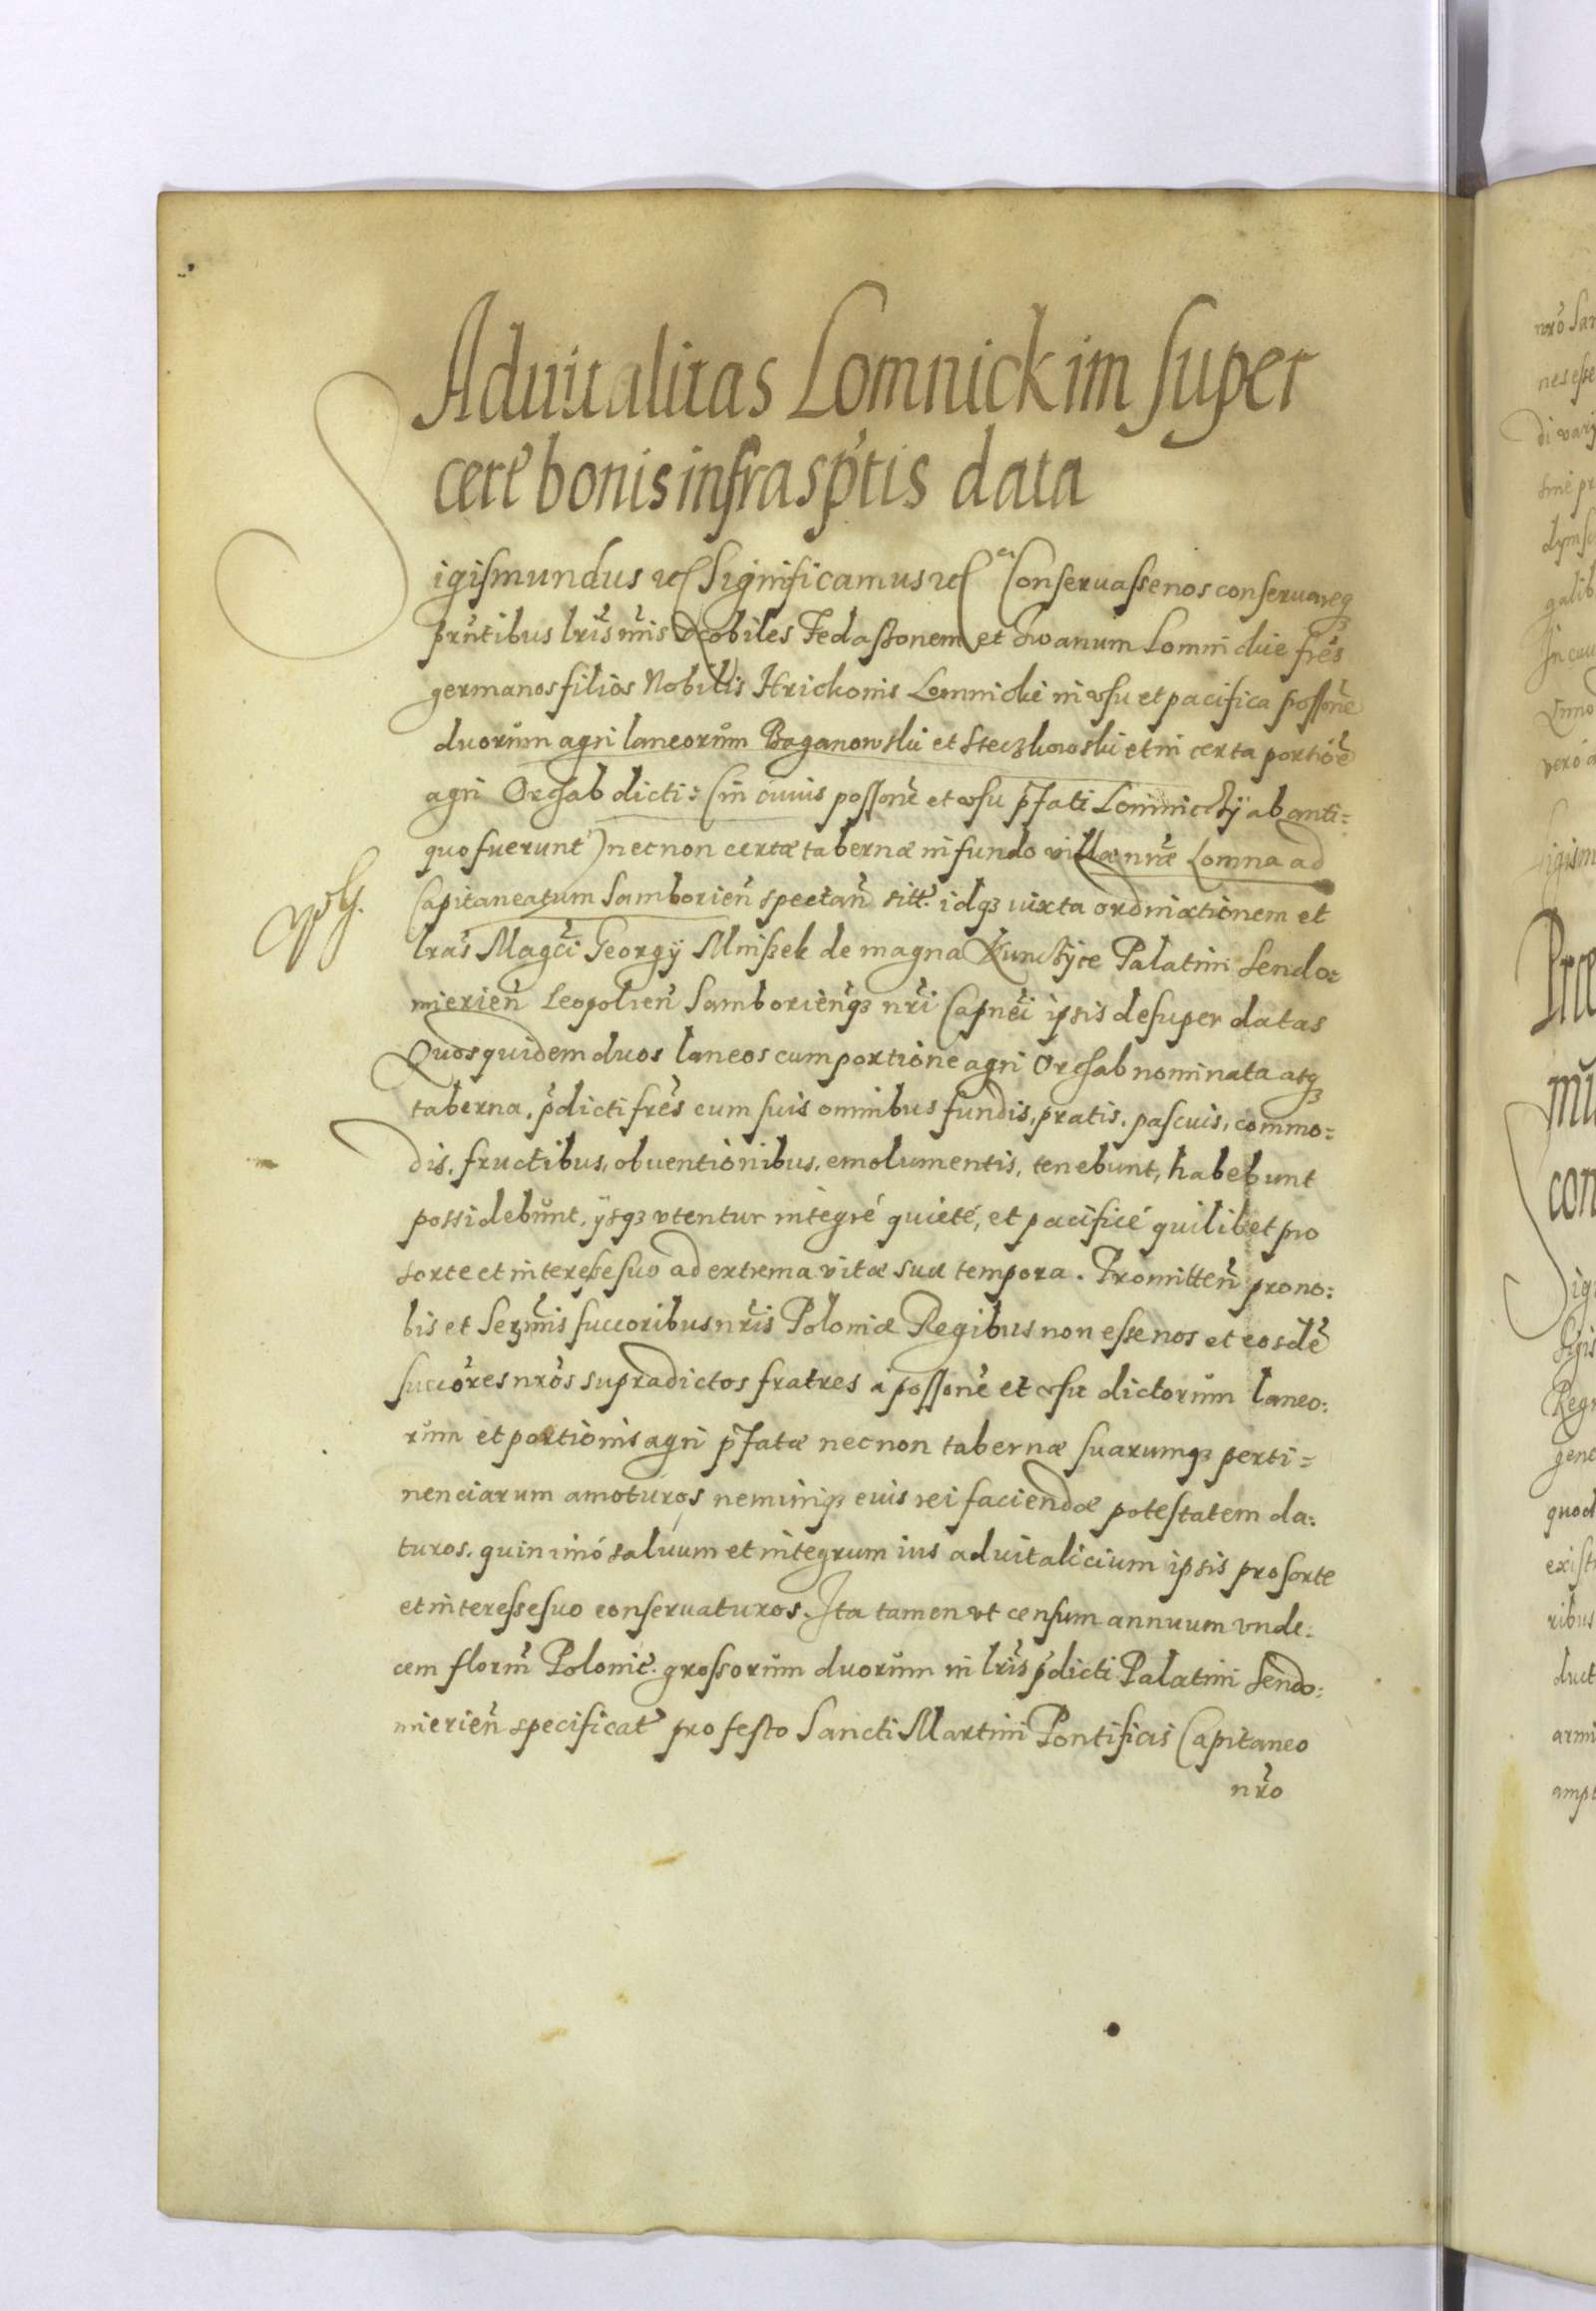 Aduitalitas Lomnickim super
certẽ bonis infrasp̃tis data
Sigismundus etc Significamus etc Conseruasse nos conseruareq3
pñtibus lr̃is nr̃is Nobiles Fedassonem et Iwanum Lomnickie fr̃es
germanos filios Nobilis Hrickonis Lomnicki in vsu et pacifica possoñe
duorum agri laneorum Baganowski et Steczkowski et in certa portiõe
agri Orhab dicti: (in cuius possoñe et vsu p̃fati Lomniccÿ ab anti=
quo fuerunt) necnon certæ tabernæ in fundo villæ nr̃æ Lomna ad
Capitaneatum Samborieñ spectañ sitt. idq3 iuxta ordinationem et
lr̃as Magc̃i Georgÿ Mniszek de magna Kunczÿce Palatini Sendo=
mierieñ Leopolieñ Samborieñq3 nr̃i Capnei ipsis desuper datas
Quos quidem duos laneos cum portione agri Orhab nominata atq3
taberna, p̃dicti fr̃es cum suis omnibus fundis, pratis, pascuis, commo=
dis, fructibus, obuentionibus, emolumentis, tenebunt, habebunt
possidebunt, ÿsq3 vtentur integré quieté, et pacificé quilibet pro
sorte et interesse suo ad extrema vitæ suæ tempora. Promitteñ pro no:
bis et Serm̃is succoribus nr̃is Poloniæ Regibus non esse nos et eosdẽ
succõres nr̃os supradictos fratres á possoñe et vsu dictorum laneo:
rum et portionis agri p̃fatæ necnon tabernæ suarumq3 perti=
nenciarum amoturos neminiq3 euis rei faciendæ potestatem da:
turos. quin imó saluum et integrum ius aduitalicium ipsis pro sorte
et interesse suo conseruaturos. Ita tamen vt censum annuum vnde:
cem florm̃ Polonic̃. grossorum duorum in lr̃is p̃dicti Palatini Sendo:
mierieñ specificat̃ pro festo Sancti Martini Pontificis Capitaneo
nr̃o